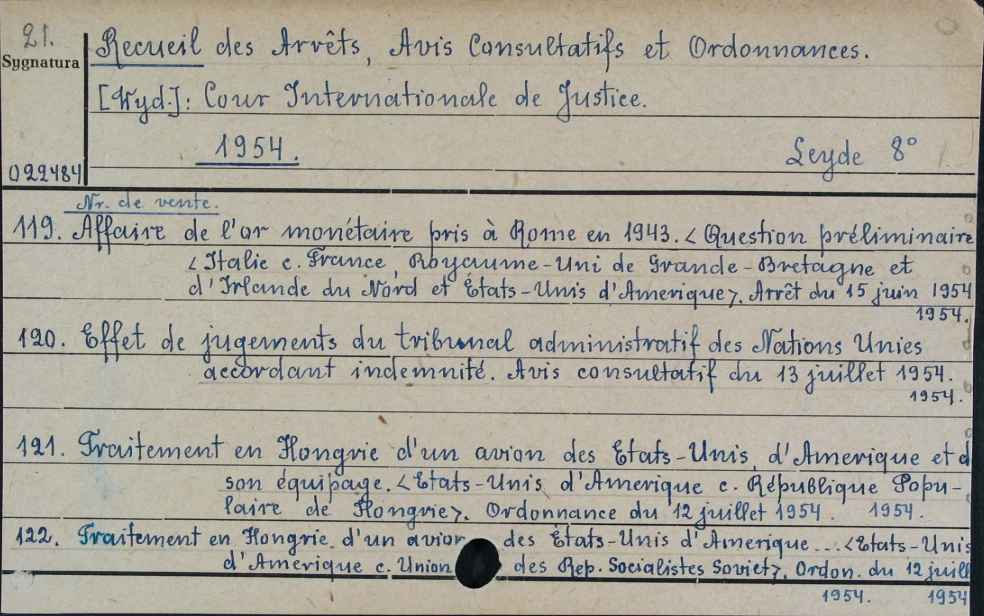 21.
Sygnatura
022484
Recueil des Arrêts, Avis Consultatifs et Ordonnances.
[Wyd.]: Cour Internationale de Justice.
1954.
Leyde 8°
Nr. de vente.
119. Affaire de l'or monétaire pris à Rome en 1943. <Question préliminaire
<Italie c. France, Royaume-Uni de Grande-Bretagne et
d'Irlande du Nord et États-Unis d'Amerique>. Arrêt du 15 juin 1954
1954.
120. Effet de jugements du tribunal administratif des Nations Unies
accordant indemnité. Avis consultatif du 13 juillet 1954.
1954.
121. Traitement en Hongrie d'un avion des Etats-Unis d'Amerique et d
son équipage. <Etats-Unis d'Amerique c. République Popu-
laire de Hongrie>. Ordonnance du 12 juillet 1954. 1954.
122. Traitement en Hongrie d'un avion des États-Unis d'Amerique...<Etats-Unis
d'Amérique c. Union des Rep. Socialistes Soviet>. Ordon. du 12 juill
1954. 1954